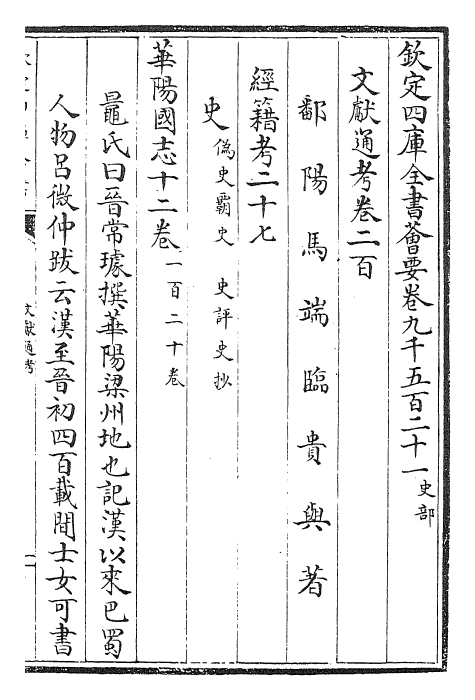 欽定四庫全書薈要卷九千五百二十一 史部
文獻通考卷二百
鄱陽馬端臨貴與著
經籍考二十七
史 偽史霸史 史評史抄
華陽國志十二卷 一百二十卷
鼂氏曰晉常璩撰華陽梁州地也記漢以來巴蜀
人物呂微仲跋云漢至晉初四百載間士女可書
文獻通考